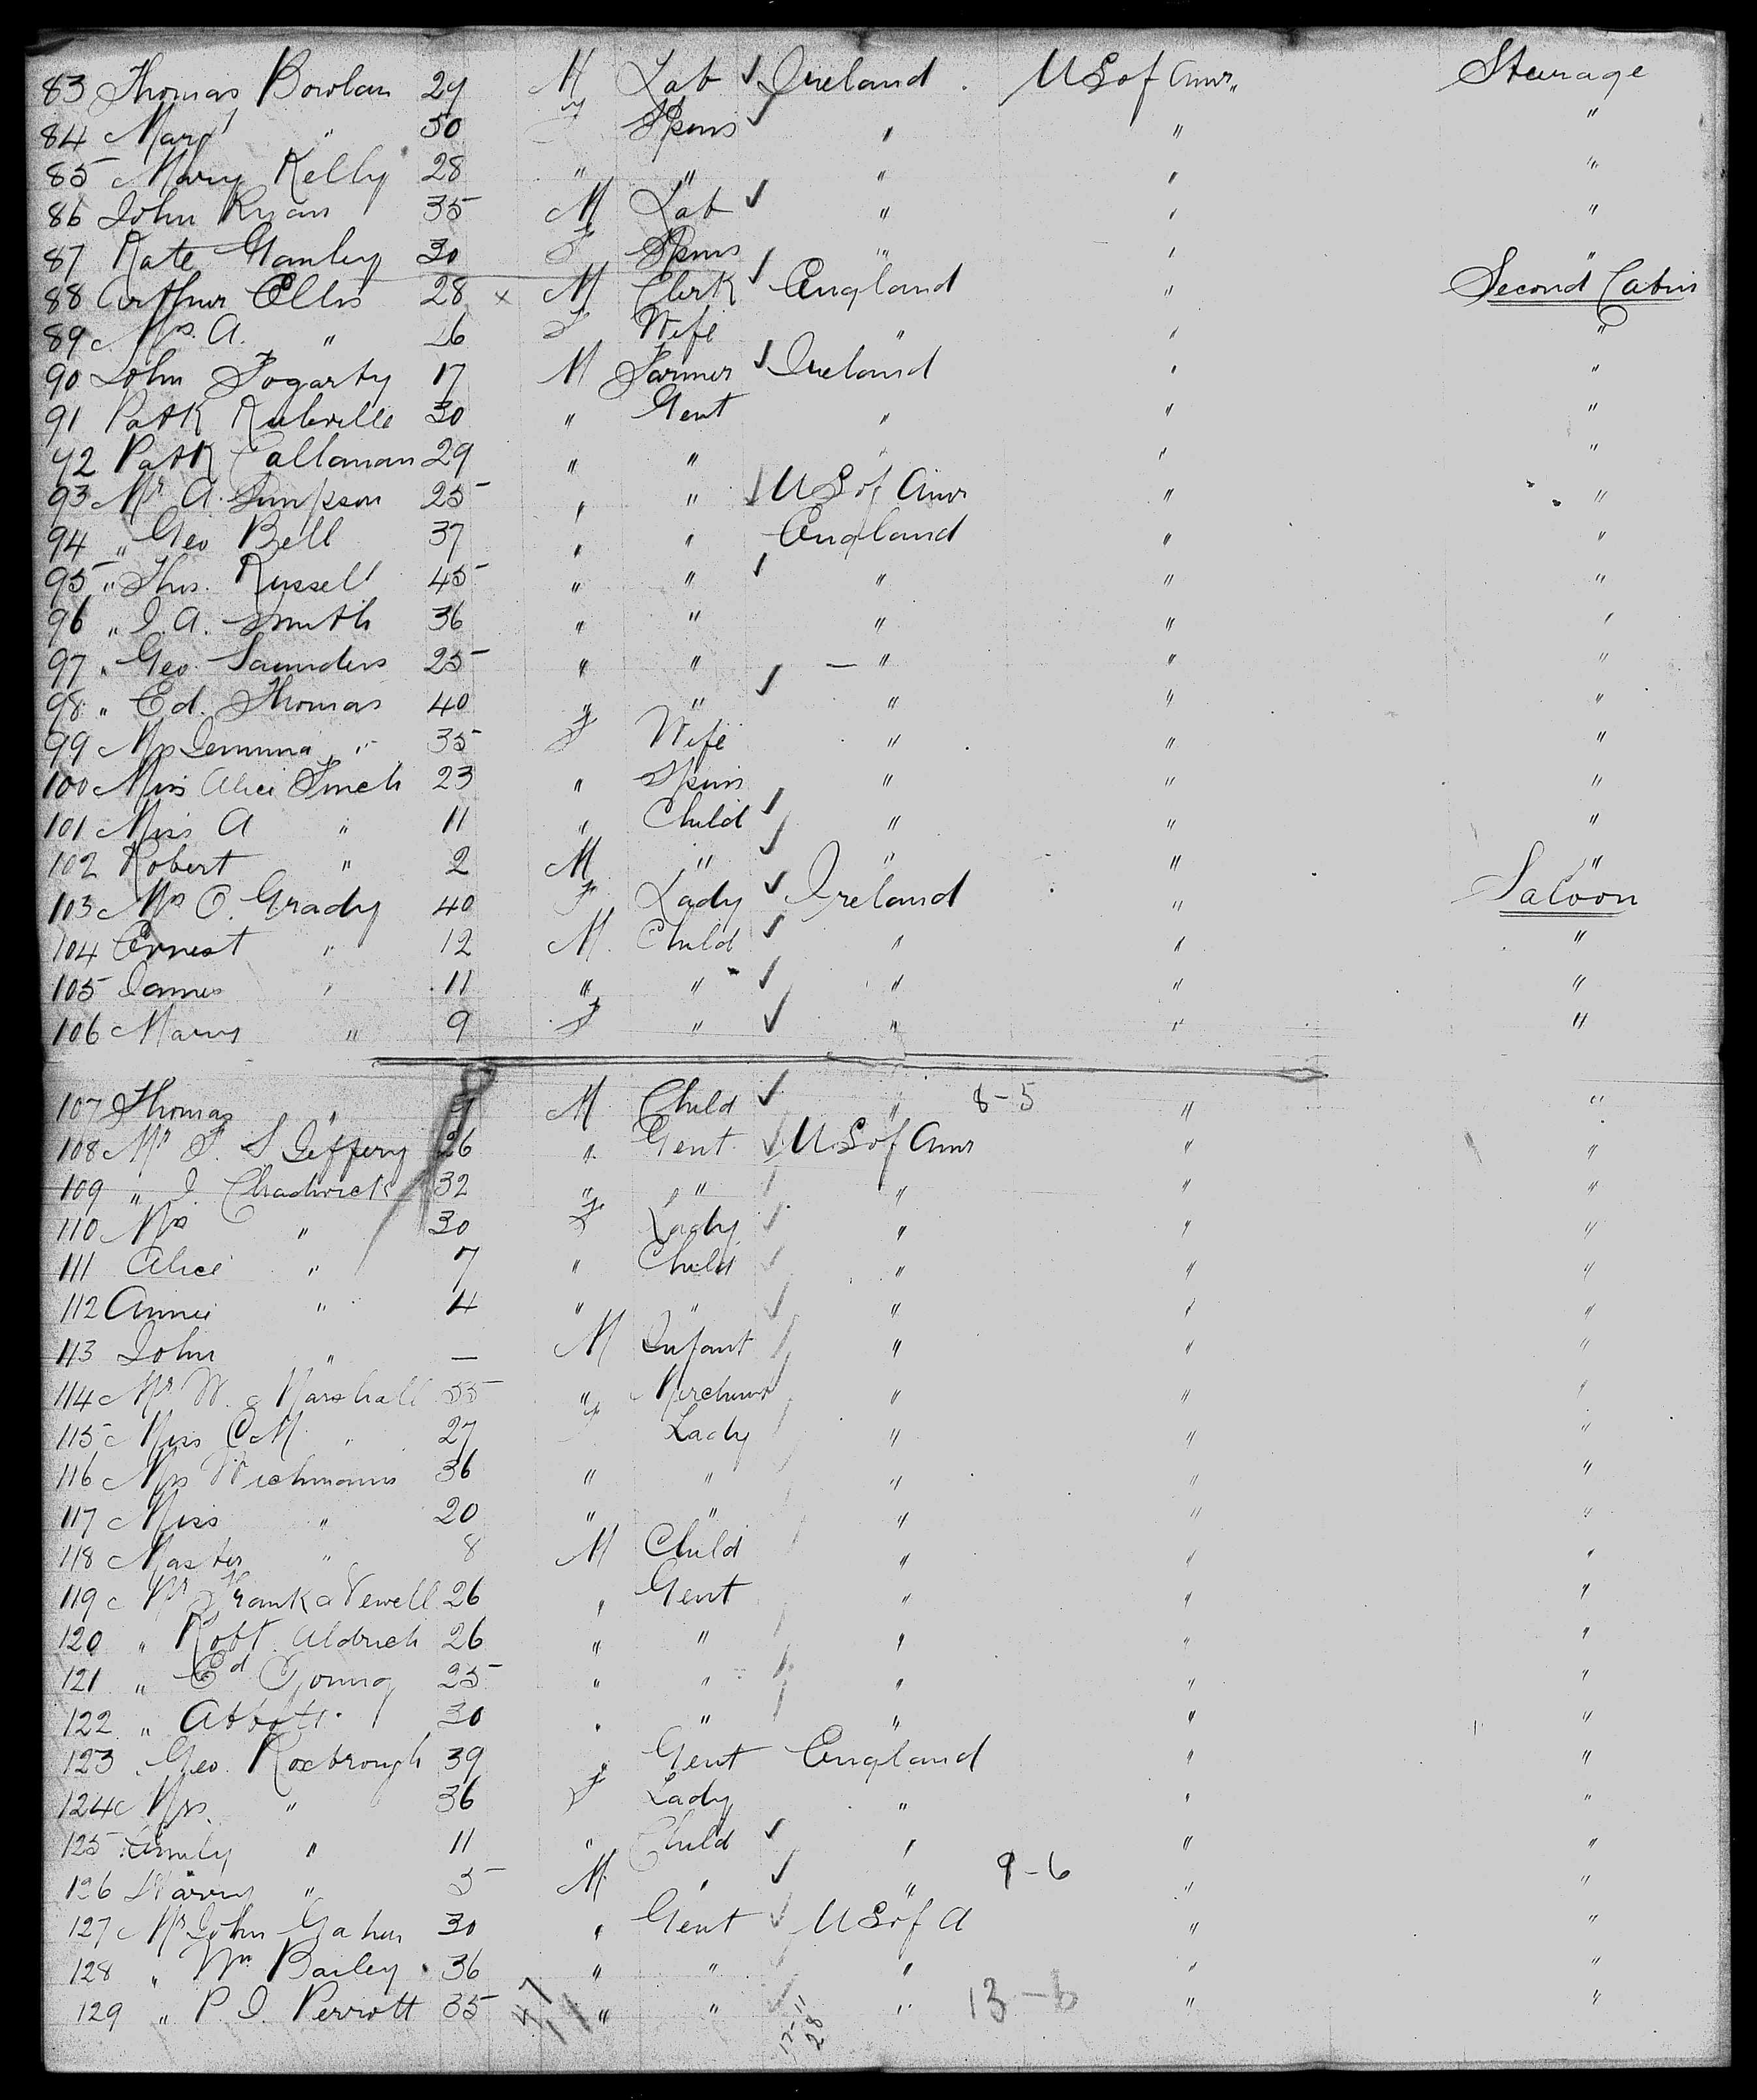 83 Thomas Bowlan 29 M Lab ✓ Ireland. US of Amr. Steerage
84 Margt " 50 F Spins ✓ " " "
85 Mary Kelly 28 " " " " "
86 John Ryan 35 M Lab ✓ " " "
87 Kate Ganley 30 F Spins " " "
88 Arthur Ellis 28 x M Clerk ✓ England " Second Cabin
89 Mrs. A. " 26 F Wife " " "
90 John Fogarty 17 M Farmer ✓ Ireland " "
91 Patk 30 " Gent " " "
92 Patk Callanan 29 " " " " "
93 Mr A. Simpson 25 " " ✓ US of Amr " "
94 " Geo Bell 37 " " England " "
95 " Thos. Russell 45 " " ✓ " " "
96 " J. A. Smith 36 " " " " "
97 " Geo. Saunders 25 " " — " " "
98 " Ed. Thomas 40 " " ✓ " " "
99 Mrs Jemima " 35 F Wife " " "
100 Miss Alice Finch 23 " Spins " " "
101 Miss A " 11 " Child ✓ " " "
102 Robert " 2 M " ✓ " " "
103 Mrs O. Grady 40 F Lady ✓ Ireland " Saloon
104 Ernest " 12 M Child ✓ " " "
105 James " 11 " " ✓ " " "
106 Mary " 9 F " ✓ " " "
107 Thomas " M Child ✓ " 8-5 " "
108 Mr F. S Jeffery 26 " Gent ✓ US of Amr " "
109 " J. Chadwick 32 " " " " "
110 Mrs " 30 F Lady ✓ " " "
111 Alice " 7 " Child ✓ " " "
112 Annie " 4 " " ✓ " " "
113 John " — M Infant " " "
114 Mr W. Marshall 55 " Merchant " " "
115 Miss C M " 27 F Lady " " "
116 Mrs Wichmann 36 " " " " "
117 Miss " 20 " " " " "
118 Master " 8 M Child " " "
119 Mr Frank Newell 26 " Gent " " "
120 " Robt. Aldrich 26 " " " " "
121 " Ed Young 25 " " " " "
122 " Abbott. 30 " " " " "
123 " Geo. Roxbrough 39 " Gent England " "
124 Mrs. " 36 F Lady " " "
125 Emily " 11 " Child ✓ " " "
126 Harry " 5 M " ✓ " 9-6 " "
127 Mr John Gahan 30 " Gent ✓ US of A " "
128 " Wm Bailey 36 " " " " "
129 " P. J. Perriott 35 " " ✓ " 13-6 " "